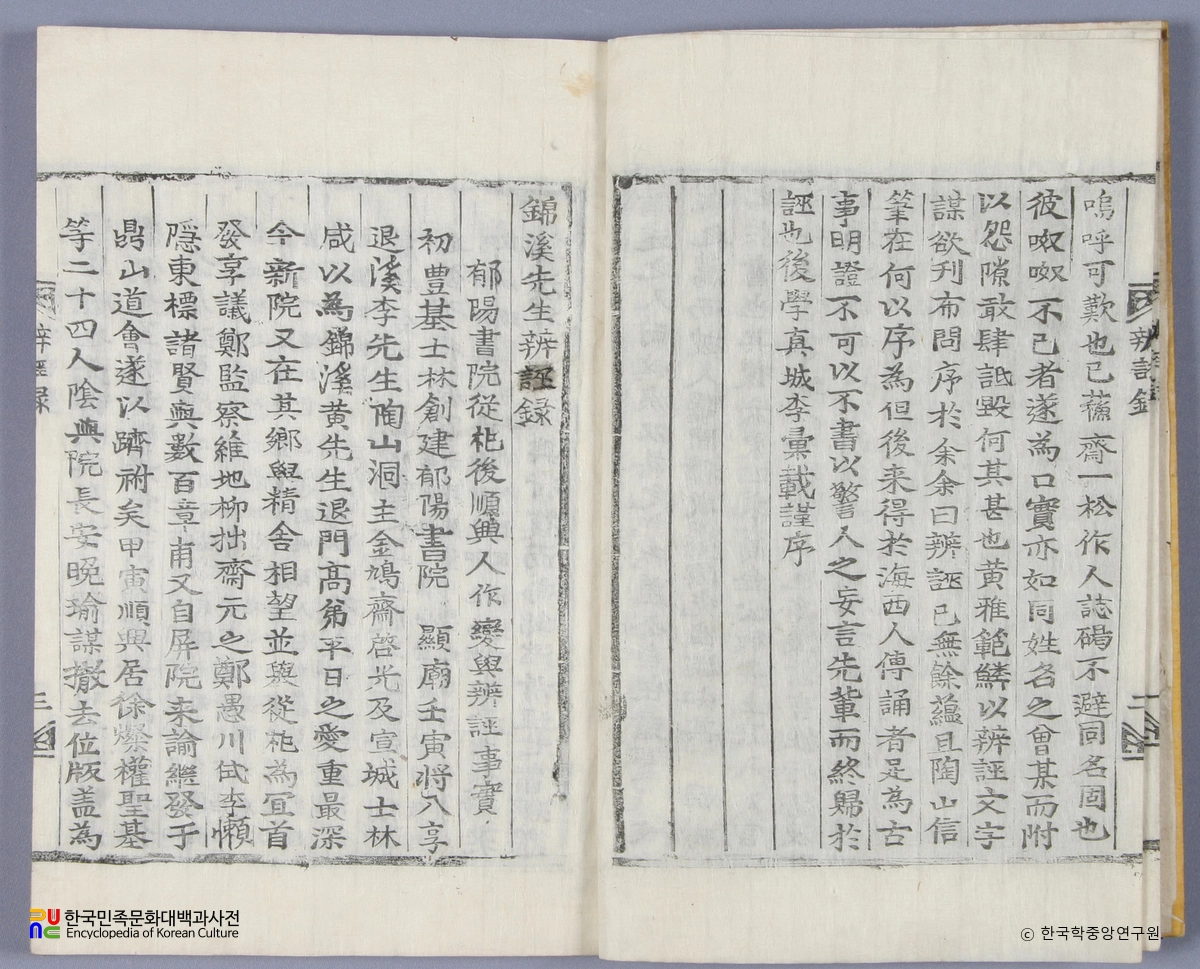 嗚呼可歎也已蘓齋一松作人誌碣不避同名固也
彼呶呶不已者遂為口實亦如同姓名之曾某而附
以怨隙敢肆詆毀何其甚也黃雅範鱗以辨誣文字
謀欲刊布問序於余余曰辨誣已無餘蘊且陶山信
筆在何以序為但後来得於海西人傳誦者足為古
事明證不可以不書以警人之妄言先軰而終歸於
誣也後學真城李彙載謹序
辨誣錄
二
錦溪先生辨誣録
郁陽書院從祀後順興人作變與辨誣事實
初豊基士林創建郁陽書院 顯廟壬寅將入享
退溪李先生陶山洞主金鳩齋啓光及宣城士林
咸以為錦溪黃先生退門高弟平日之愛重最深
今新院又在其鄉與精舍相望並與從祀為宜首
發享議鄭監察維地柳拙齋元之鄭愚川侙李懶
隱東標諸賢與數百章甫又自屏院来諭繼發于
鼎山道會遂以躋祔矣甲寅順興居徐爃權聖基
等二十四人陰與院長安晚瑜謀撤去位版盖為
辨誣録
三
한국민족문화대백과사전
Encyclopedia of Korean Culture
ⓒ 한국학중앙연구원